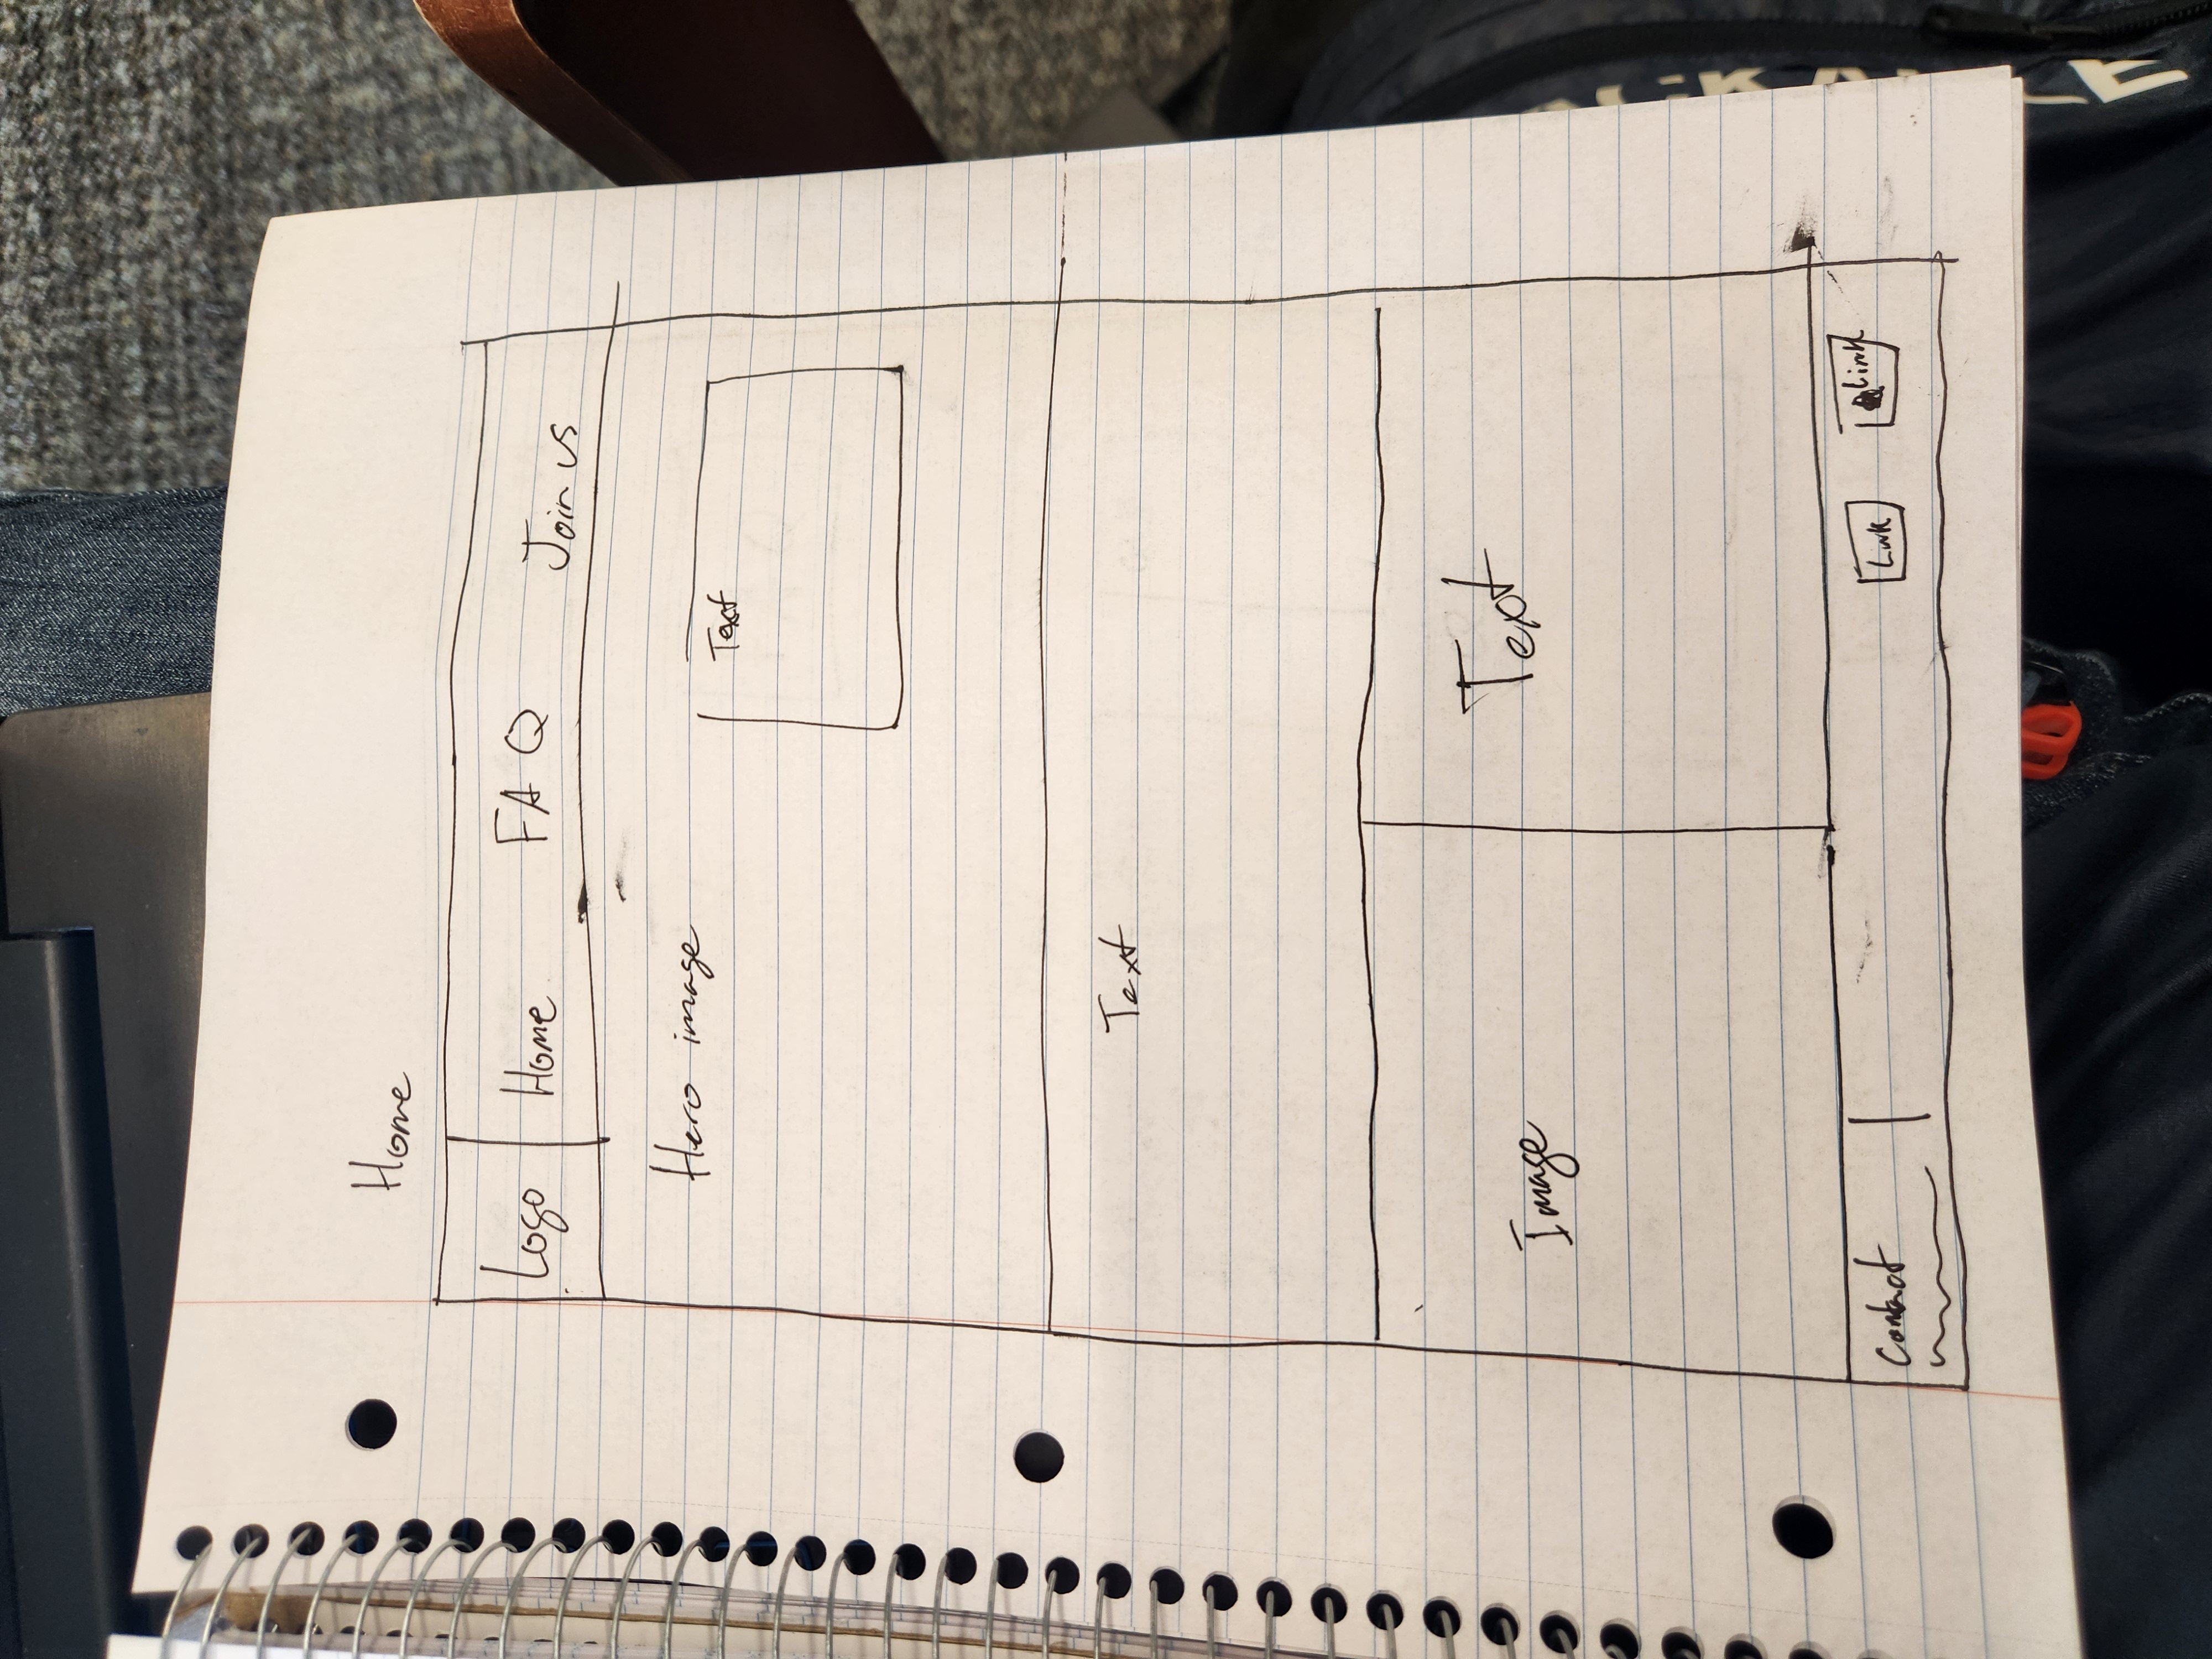 Home
Logo Home FAQ Join us
Hero image
Text
Text
Image Text
Contact Link Link